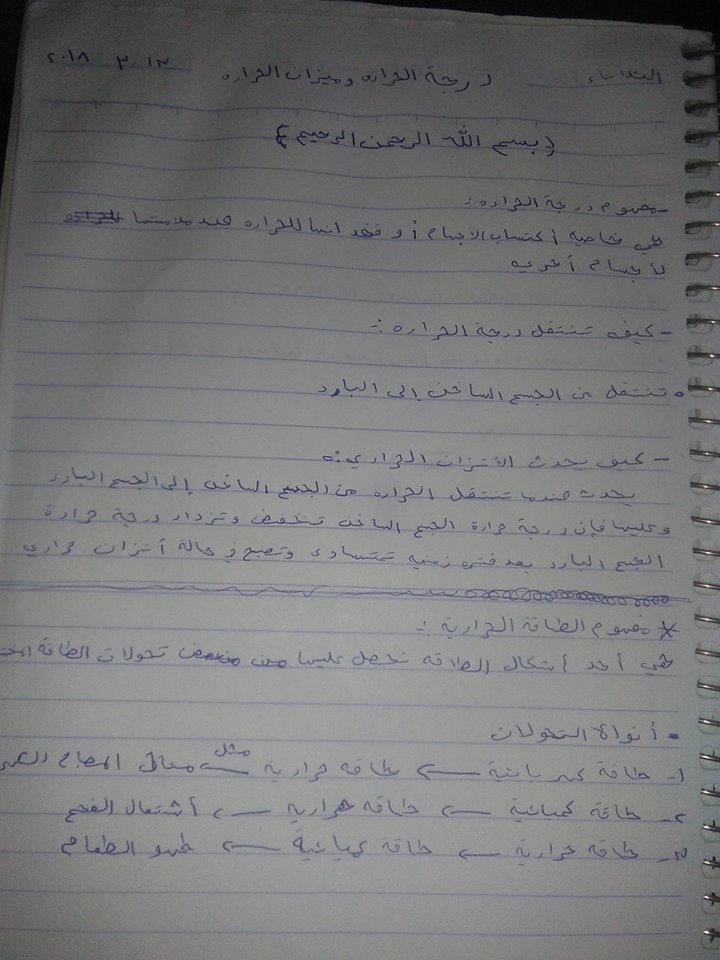 الثلاثاء درجة الحراره وميزان الحراره ١٣ ٣ ٢٠١٨
{بسم الله الرحمن الرحيم}
- مفهوم درجة الحراره :
هي خاصية أكتساب الأجسام أو فقدانها للحراره عند ملامستها
لأجسام أخرى
- كيف تنتقل درجة الحراره :-
• تنتقل من الجسم الساخن إلى البارد
- كيف يحدث الأتزان الحراري :
يحدث عندما تنتقل الحراره من الجسم الساخن إلى الجسم البارد
وعليها فإن درجة حرارة الجسم الساخن تنخفض وتزداد درجة حرارة
الجسم البارد بعد فتره زمنيه تتساوى وتصبح في حالة أتزان حراري
* مفهوم الطاقة الحرارية :-
هي أحد أشكال الطاقه نحصل عليها من تحولات الطاقة
• أنواع التحولات
١- طاقة كهربائية ← طاقه حرارية مثل ← المصباح
٢- طاقة كميائية ← طاقه حراريه ← أشتعال الفحم
٣- طاقه حرارية ← طاقة كميائية ← طهو الطعام